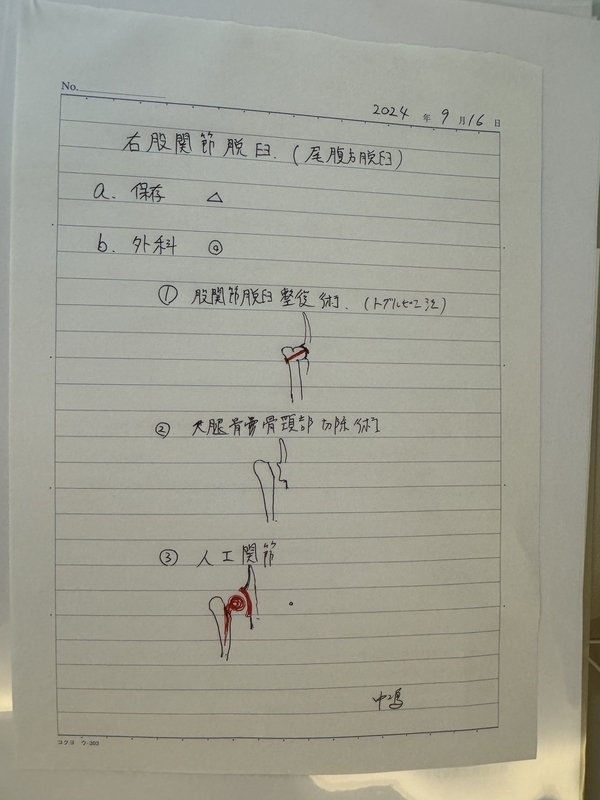 No.
2024 年 9 月 16 日
右股関節脱臼.(尾腹方脱臼)
a. 保存 △
b. 外科 ◎
① 股関節脱臼整復術.(トグルピン法)
② 大腿骨骨頭頸部切除術
③ 人工関節
中嶋
コクヨ ケ-303